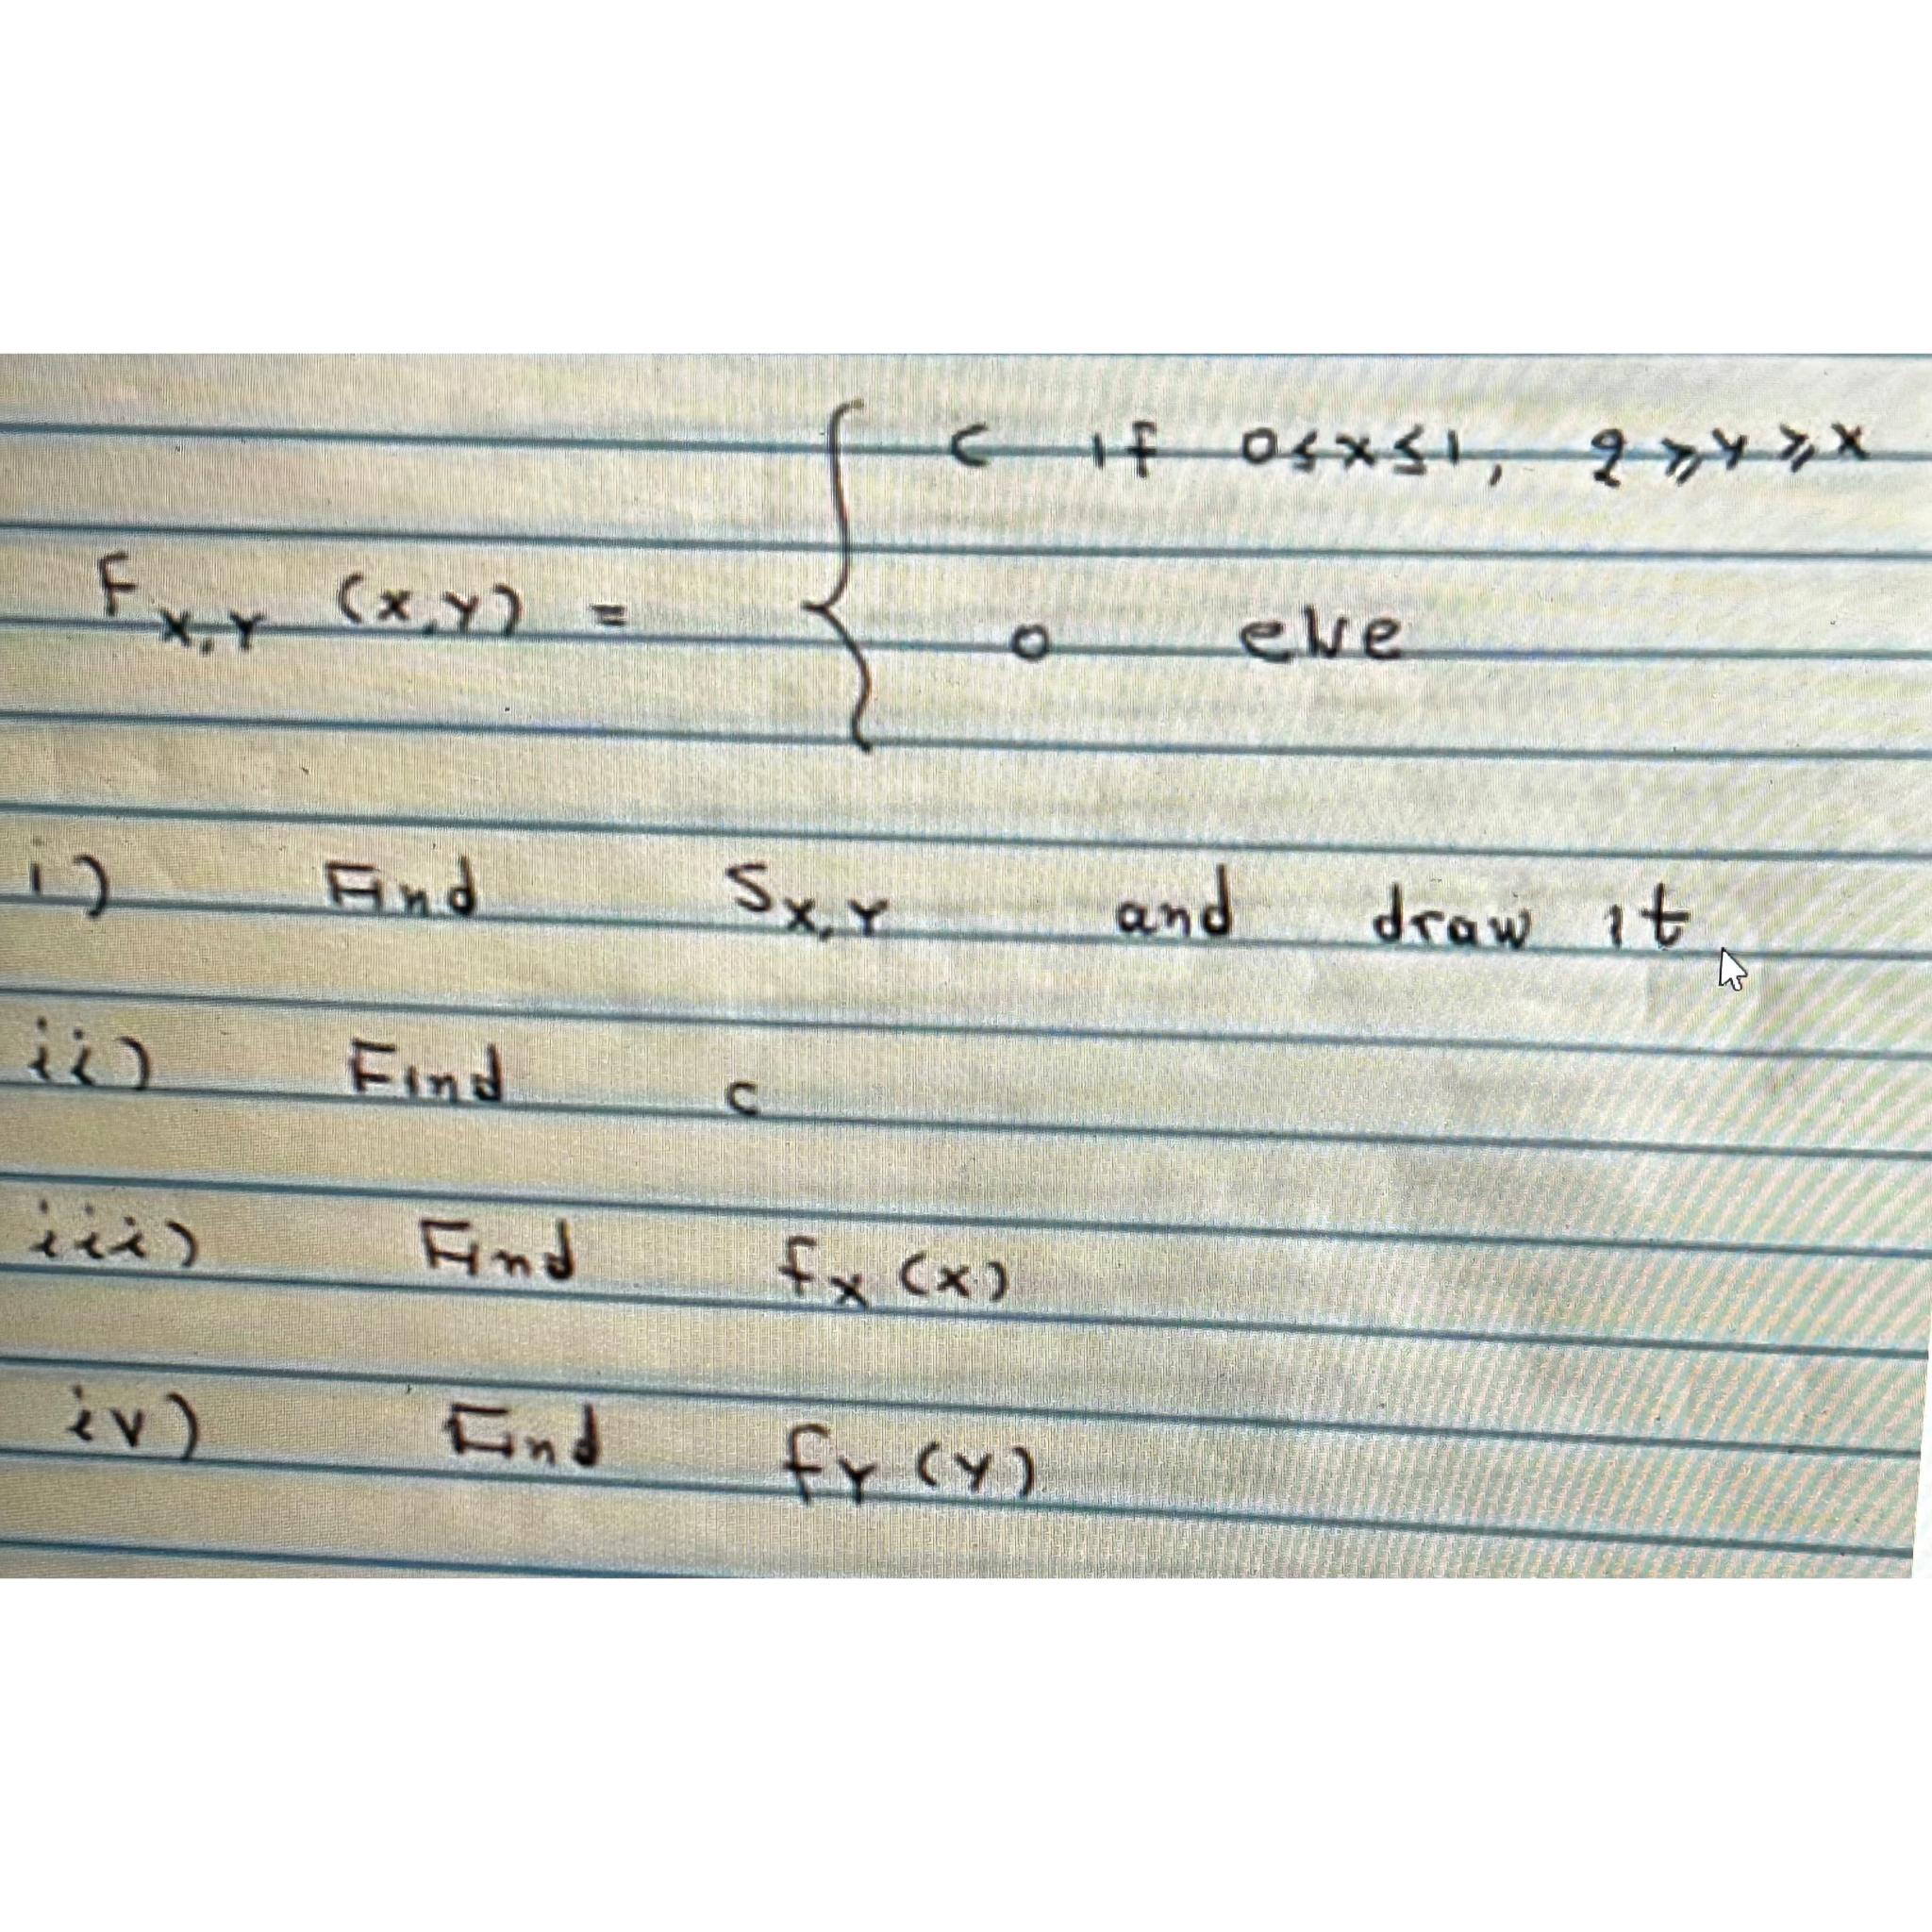 c if 0≤x≤1, 2⩾y⩾x
F X,Y (x,y) =
0 else
i) Find S X,Y and draw it
ii) Find c
iii) Find f X (x)
iv) Find f Y (y)